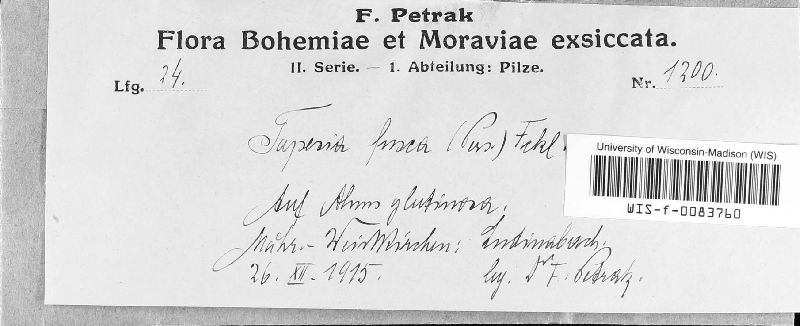 F. Petrak
Flora Bohemiae et Moraviae exsiccata.
II. Serie. — 1. Abteilung: Pilze.
Lfg. 24.
Nr. 1200.
Tapesia fusca (Pers.) Fckl.
University of Wisconsin-Madison (WIS)
WIS-f-0083760
Auf Alnus glutinosa.
Mähr.-Weisskirchen:
26. XII. 1915. leg. Dr F. Petrak.